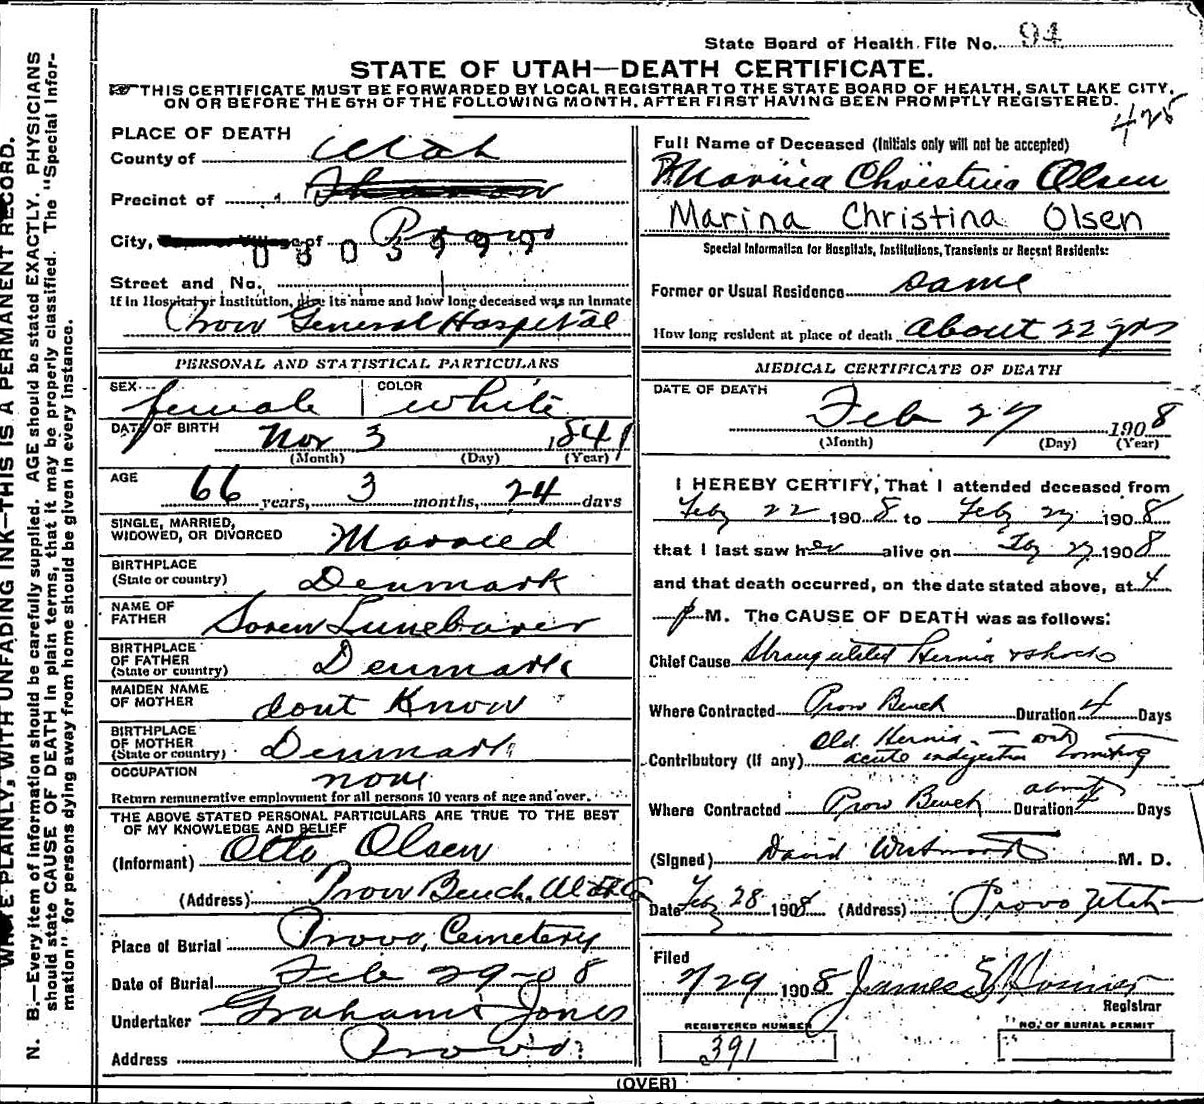 State Board of Health File No. 94
STATE OF UTAH—DEATH CERTIFICATE.
THIS CERTIFICATE MUST BE FORWARDED BY LOCAL REGISTRAR TO THE STATE BOARD OF HEALTH, SALT LAKE CITY,
ON OR BEFORE THE 5TH OF THE FOLLOWING MONTH, AFTER FIRST HAVING BEEN PROMPTLY REGISTERED.
425
PLACE OF DEATH
County of Utah
Precinct of
City, of Provo
0803999
Street and No.
If in Hospital or Institution, give its name and how long deceased was an inmate
Provo General Hospital
PERSONAL AND STATISTICAL PARTICULARS
SEX female COLOR white
DATE OF BIRTH Nov 3 1841
(Month) (Day) (Year)
AGE 66 years, 3 months, 24 days
SINGLE, MARRIED,
WIDOWED, OR DIVORCED Married
BIRTHPLACE
(State or country) Denmark
NAME OF
FATHER Soren
BIRTHPLACE
OF FATHER
(State or country) Denmark
MAIDEN NAME
OF MOTHER dont Know
BIRTHPLACE
OF MOTHER
(State or country) Denmark
OCCUPATION none
Return remunerative employment for all persons 10 years of age and over.
THE ABOVE STATED PERSONAL PARTICULARS ARE TRUE TO THE BEST
OF MY KNOWLEDGE AND BELIEF
(Informant) Otto Olsen
(Address) Provo Bench, Utah Co
Place of Burial Provo, Cemetery
Date of Burial Feb 29-08
Undertaker Graham & Jones
Address Provo
Full Name of Deceased (Initials only will not be accepted)
Marina Christina Olsen
Marina Christina Olsen
Special Information for Hospitals, Institutions, Transients or Recent Residents:
Former or Usual Residence same
How long resident at place of death about 22 yrs
MEDICAL CERTIFICATE OF DEATH
DATE OF DEATH
Feb 27 1908
(Month) (Day) (Year)
I HEREBY CERTIFY, That I attended deceased from
Feby 22 1908 to Feby 27 1908
that I last saw her alive on Feby 27 1908
and that death occurred, on the date stated above, at 4
p M. The CAUSE OF DEATH was as follows:
Chief Cause Strangulated Hernia & shock
Where Contracted Provo Bench Duration 4 Days
Old Hernia — with
Contributory (If any) acute indigestion vomiting
Where Contracted Provo Bench Duration about 4 Days
(Signed) David Westwood M. D.
Date Feby 28 1908 (Address) Provo Utah
Filed
2/29 1908 James E Homer
Registrar
REGISTERED NUMBER
391
NO. OF BURIAL PERMIT
(OVER)
WRITE PLAINLY, WITH UNFADING INK—THIS IS A PERMANENT RECORD.
N. B.—Every item of information should be carefully supplied. AGE should be stated EXACTLY. PHYSICIANS
should state CAUSE OF DEATH in plain terms, that it may be properly classified. The "Special Infor-
mation" for persons dying away from home should be given in every instance.